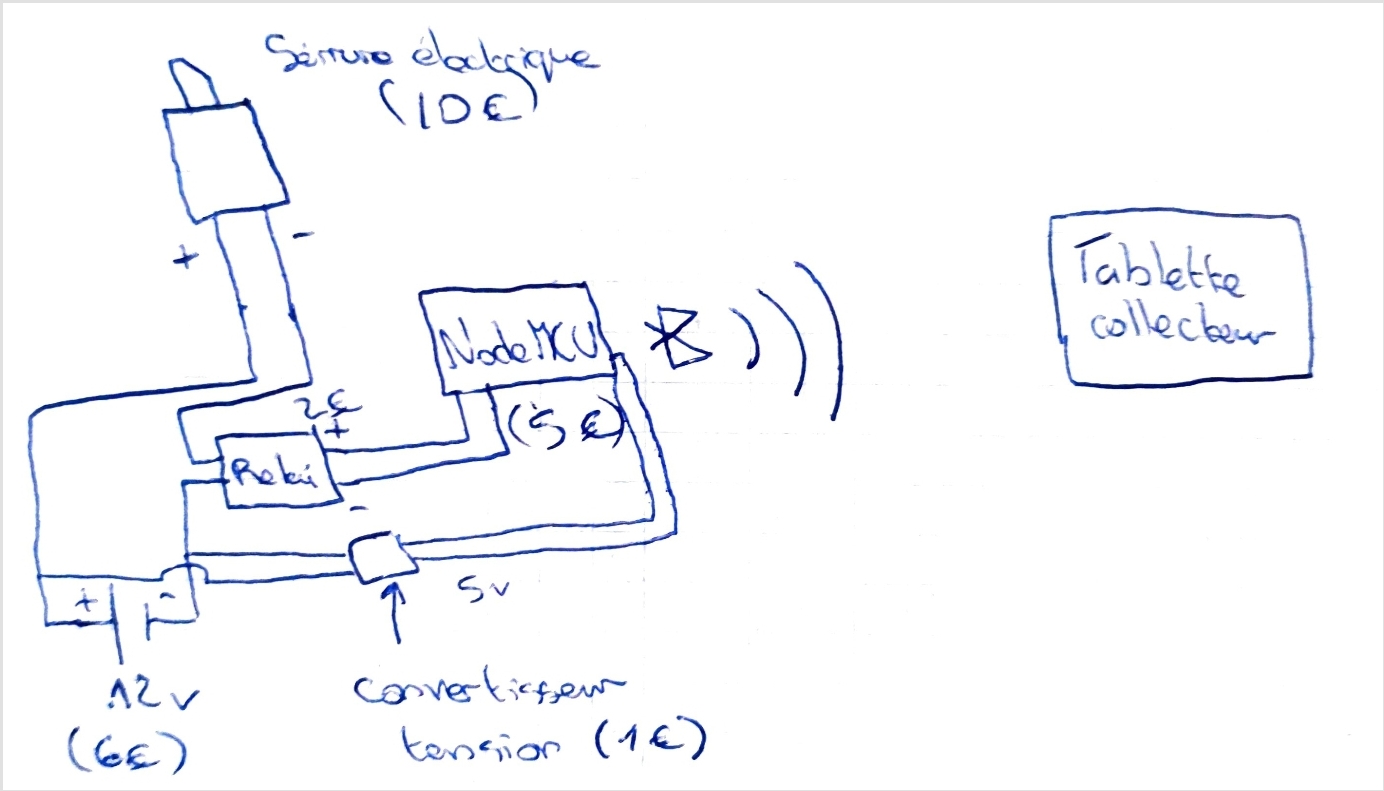 Serrure électrique
(10€)
+ -
NodeMCU
Tablette
collecteur
2€
+
(5€)
Relai
-
5v
+ -
12v
(6€)
convertisseur
tension (1€)